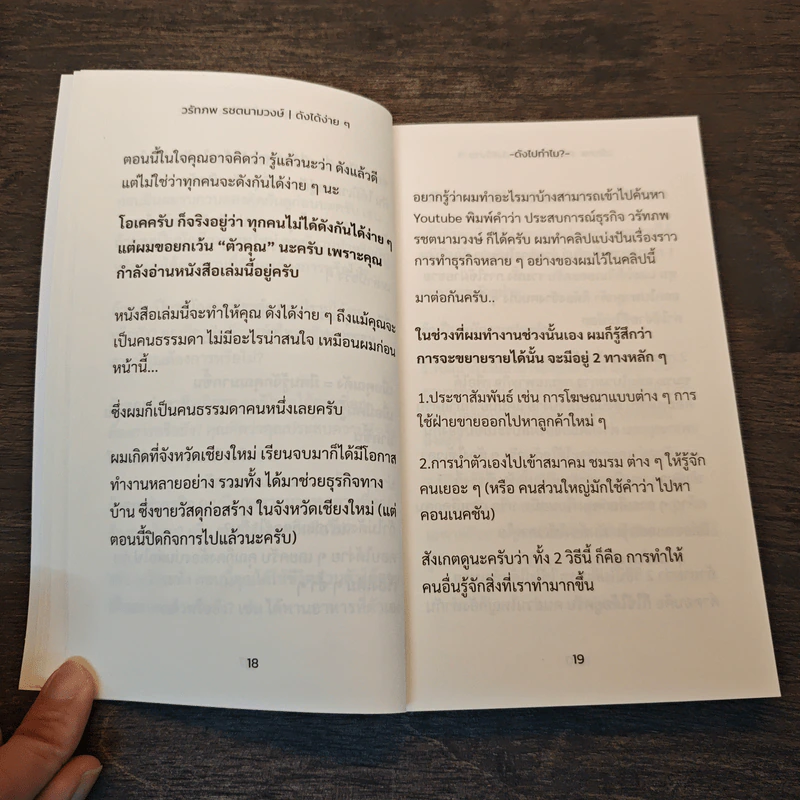 วรัทภพ รชตนามวงษ์ | ดังได้ง่าย ๆ
ตอนนี้ในใจคุณอาจคิดว่า รู้แล้วนะว่า ดังแล้วดี
แต่ไม่ใช่ว่าทุกคนจะดังกันได้ง่าย ๆ นะ
โอเคครับ ก็จริงอยู่ว่า ทุกคนไม่ได้ดังกันได้ง่าย ๆ
แต่ผมขอยกเว้น “ตัวคุณ” นะครับ เพราะคุณ
กำลังอ่านหนังสือเล่มนี้อยู่ครับ
หนังสือเล่มนี้จะทำให้คุณ ดังได้ง่าย ๆ ถึงแม้คุณจะ
เป็นคนธรรมดา ไม่มีอะไรน่าสนใจ เหมือนผมก่อน
หน้านี้...
ซึ่งผมก็เป็นคนธรรมดาคนหนึ่งเลยครับ
ผมเกิดที่จังหวัดเชียงใหม่ เรียนจบมาก็ได้มีโอกาส
ทำงานหลายอย่าง รวมทั้ง ได้มาช่วยธุรกิจทาง
บ้าน ซึ่งขายวัสดุก่อสร้าง ในจังหวัดเชียงใหม่ (แต่
ตอนนี้ปิดกิจการไปแล้วนะครับ)
18
-ดังไปทำไม?-
อยากรู้ว่าผมทำอะไรมาบ้างสามารถเข้าไปค้นหา
Youtube พิมพ์คำว่า ประสบการณ์ธุรกิจ วรัทภพ
รชตนามวงษ์ ก็ได้ครับ ผมทำคลิปแบ่งปันเรื่องราว
การทำธุรกิจหลาย ๆ อย่างของผมไว้ในคลิปนี้
มาต่อกันครับ..
ในช่วงที่ผมทำงานช่วงนั้นเอง ผมก็รู้สึกว่า
การจะขยายรายได้นั้น จะมีอยู่ 2 ทางหลัก ๆ
1.ประชาสัมพันธ์ เช่น การโฆษณาแบบต่าง ๆ การ
ใช้ฝ่ายขายออกไปหาลูกค้าใหม่ ๆ
2.การนำตัวเองไปเข้าสมาคม ชมรม ต่าง ๆ ให้รู้จัก
คนเยอะ ๆ (หรือ คนส่วนใหญ่มักใช้คำว่า ไปหา
คอนเนคชัน)
สังเกตดูนะครับว่า ทั้ง 2 วิธีนี้ ก็คือ การทำให้
คนอื่นรู้จักสิ่งที่เราทำมากขึ้น
19